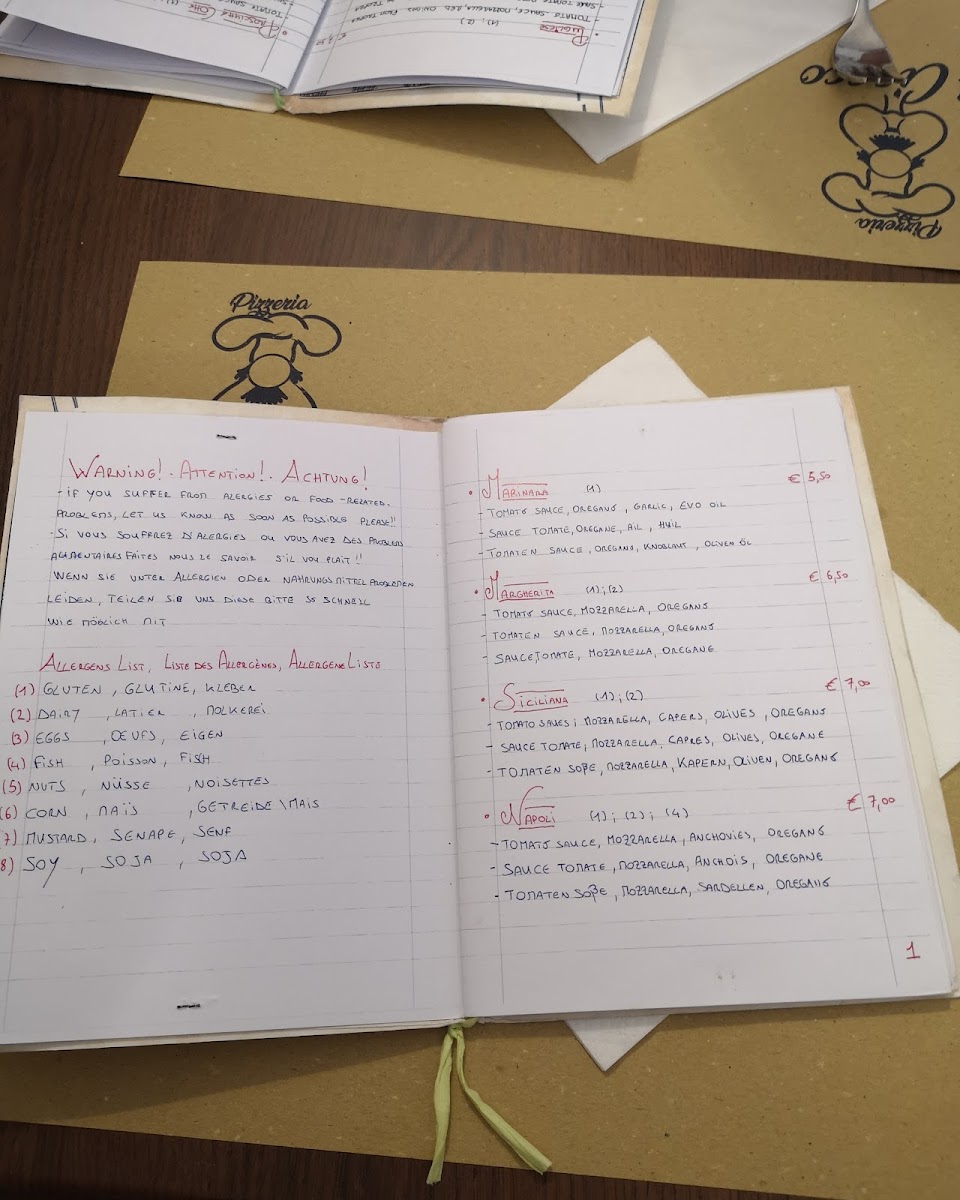 PUGLIESE
(1); (2)
€ 7,50
Pizzeria
Pizzeria
WARNING! . ATTENTION! . ACHTUNG!
- IF YOU SUFFER FROM ALERGIES OR FOOD-RELATED.
PROBLEMS, LET US KNOW AS SOON AS POSSIBLE PLEASE!!
- SI VOUS SOUFFREZ D'ALERGIES OU VOUS AVEZ DES PROBLEMS
ALIMENTAIRES FAITES NOUS LE SAVOIR S'IL VOU PLAIT!!
WENN SIE UNTER ALLERGIEN ODER NAHRUNGSMITTEL PROBLEMEN
LEIDEN, TEILEN SIE UNS DIESE BITTE SO SCHNELL
WIE MÖGLICH MIT
ALLERGENS LIST, LISTE DES ALLERGÈNES, ALLERGENE LISTE
(1) GLUTEN , GLUTINE, KLEBER
(2) DAIRY , LATIER , MOLKEREI
(3) EGGS , ŒUFS, EIGEN
(4) FISH , POISSON, FISH
(5) NUTS , NÜSSE , NOISETTES
(6) CORN , MAÏS , GETREIDE\MAIS
7) MUSTARD, SENAPE, SENF
8) SOY , SOJA , SOJA
• MARINARA (1) € 5,50
- TOMATO SAUCE, OREGANO, GARLIC, EVO OIL
- SAUCE TOMATE, OREGANE, AIL, HUIL
- TOMATEN SAUCE, OREGANO, KNOBLAUT, OLIVEN ÖL
• MARGHERITA (1);(2) € 6,50
- TOMATO SAUCE, MOZZARELLA, OREGANO
- TOMATEN SAUCE, MOZZARELLA, OREGANO
- SAUCE TOMATE, MOZZARELLA, OREGANE
• SICILIANA (1);(2) € 7,00
- TOMATO SAUES, MOZZARELLA, CAPERS, OLIVES, OREGANO
- SAUCE TOMATE, MOZZARELLA, CAPRES, OLIVES, OREGANE
- TOMATEN SOßE, MOZZARELLA, KAPERN, OLIVEN, OREGANO
• NAPOLI (1); (2); (4) € 7,00
- TOMATO SAUCE, MOZZARELLA, ANCHOVIES, OREGANO
- SAUCE TOMATE, MOZZARELLA, ANCHOIS, OREGANE
- TOMATEN SOßE, MOZZARELLA, SARDELLEN, OREGANO
1